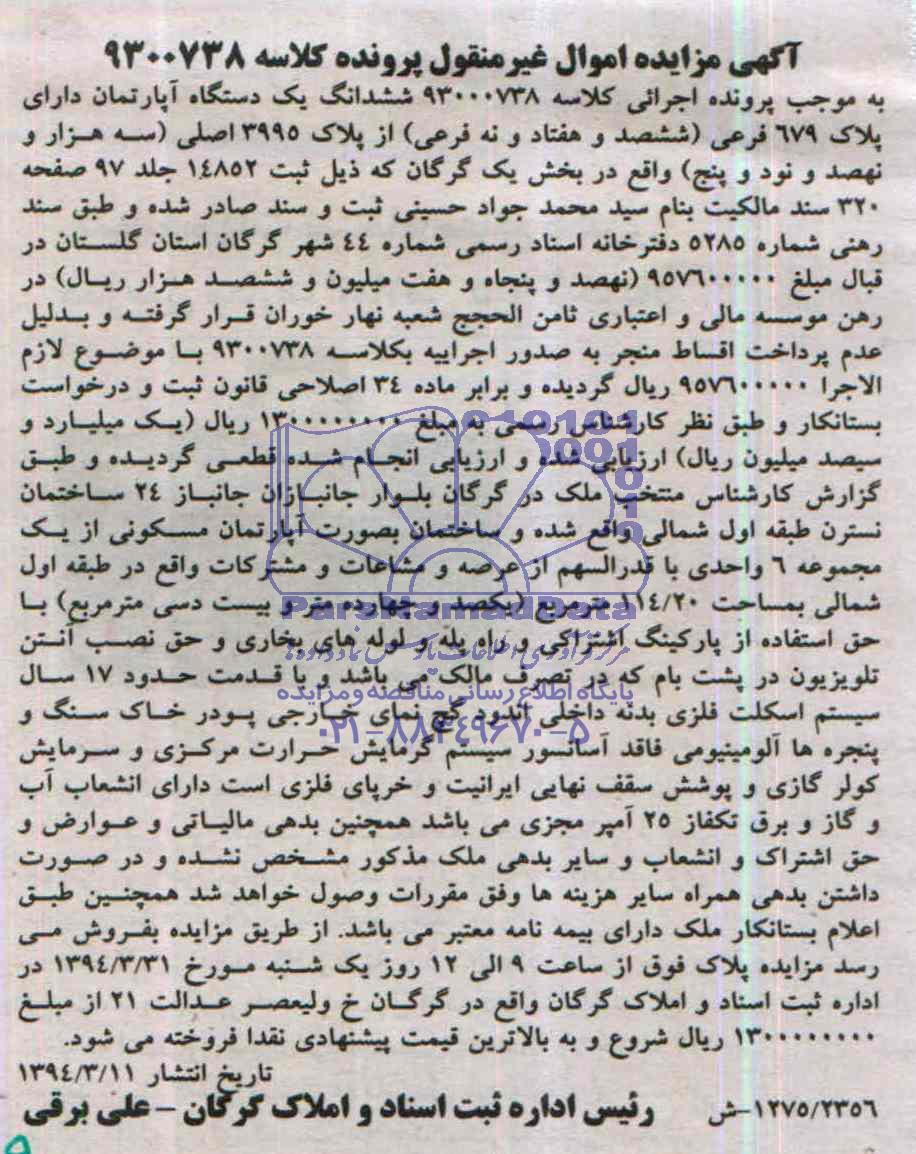 آگهی مزایده اموال غیرمنقول پرونده کلاسه ۹۳۰۰۷۳۸
به موجب پرونده اجرائی کلاسه ۹۳۰۰۰۷۳۸ ششدانگ یک دستگاه آپارتمان دارای
پلاک ۶۷۹ فرعی (ششصد و هفتاد و نه فرعی) از پلاک ۳۹۹۵ اصلی (سه هزار و
نهصد و نود و پنج) واقع در بخش یک گرگان که ذیل ثبت ۱۴۸۵۲ جلد ۹۷ صفحه
۳۲۰ سند مالکیت بنام سید محمد جواد حسینی ثبت و سند صادر شده و طبق سند
رهنی شماره ۵۲۸۵ دفترخانه اسناد رسمی شماره ۴۴ شهر گرگان استان گلستان در
قبال مبلغ ۹۵۷۶۰۰۰۰۰ (نهصد و پنجاه و هفت میلیون و ششصد هزار ریال) در
رهن موسسه مالی و اعتباری ثامن الحجج شعبه نهار خوران قرار گرفته و بدلیل
عدم پرداخت اقساط منجر به صدور اجراییه بکلاسه ۹۳۰۰۷۳۸ با موضوع لازم
الاجرا ۹۵۷۶۰۰۰۰۰ ریال گردیده و برابر ماده ۳۴ اصلاحی قانون ثبت و درخواست
بستانکار و طبق نظر کارشناس رسمی به مبلغ ۱۳۰۰۰۰۰۰۰۰ ریال (یک میلیارد و
سیصد میلیون ریال) ارزیابی شده و ارزیابی انجام شده قطعی گردیده و طبق
گزارش کارشناس منتخب ملک در گرگان بلوار جانبازان جانباز ۲۴ ساختمان
نسترن طبقه اول شمالی واقع شده و ساختمان بصورت آپارتمان مسکونی از یک
مجموعه ۶ واحدی با قدرالسهم از عرصه و مشاعات و مشترکات واقع در طبقه اول
شمالی بمساحت ۱۱۴/۲۰ مترمربع (یکصد و چهارده متر و بیست دسی مترمربع) با
حق استفاده از پارکینگ اشتراکی و راه پله و لوله های بخاری و حق نصب آنتن
تلویزیون در پشت بام که در تصرف مالک می باشد و با قدمت حدود ۱۷ سال
سیستم اسکلت فلزی بدنه داخلی اندود گچ نمای خارجی پودر خاک سنگ و
پنجره ها آلومینیومی فاقد آسانسور سیستم گرمایش حرارت مرکزی و سرمایش
کولر گازی و پوشش سقف نهایی ایرانیت و خرپای فلزی است دارای انشعاب آب
و گاز و برق تکفاز ۲۵ آمپر مجزی می باشد همچنین بدهی مالیاتی و عوارض و
حق اشتراک و انشعاب و سایر بدهی ملک مذکور مشخص نشده و در صورت
داشتن بدهی همراه سایر هزینه ها وفق مقررات وصول خواهد شد همچنین طبق
اعلام بستانکار ملک دارای بیمه نامه معتبر می باشد. از طریق مزایده بفروش می
رسد مزایده پلاک فوق از ساعت ۹ الی ۱۲ روز یک شنبه مورخ ۱۳۹۴/۳/۳۱ در
اداره ثبت اسناد و املاک گرگان واقع در گرگان خ ولیعصر عدالت ۲۱ از مبلغ
۱۳۰۰۰۰۰۰۰۰ ریال شروع و به بالاترین قیمت پیشنهادی نقدا فروخته می شود.
تاریخ انتشار ۱۳۹۴/۳/۱۱
رئیس اداره ثبت اسناد و املاک گرگان - علی برقی
۱۲۷۵/۲۳۵۶-ش
ParsNamadData
پایگاه اطلاع رسانی مناقصه و مزایده
۰۲۱-۸۸۳۴۹۶۷۰-۵